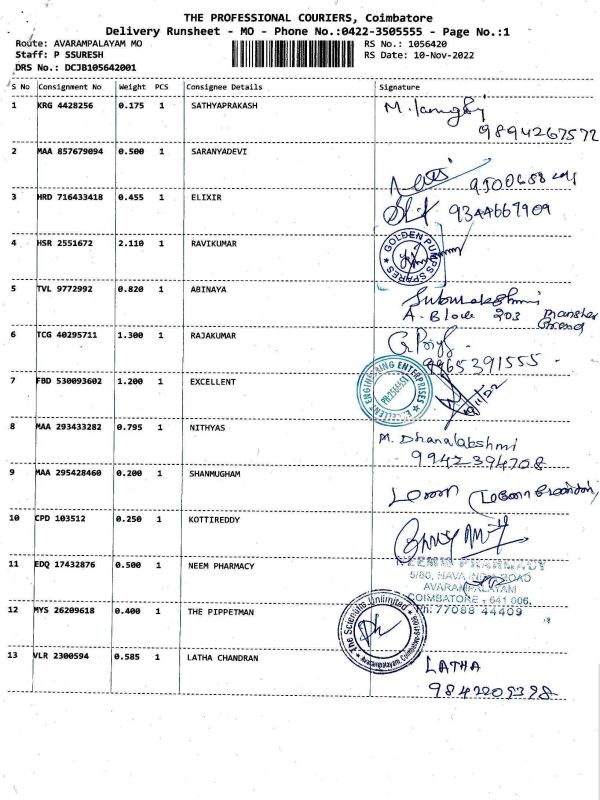 THE PROFESSIONAL COURIERS, Coimbatore
Delivery Runsheet - MO - Phone No.:0422-3505555 - Page No.:1
Route: AVARAMPALAYAM MO RS No.: 1056420
Staff: P SSURESH RS Date: 10-Nov-2022
DRS No.: DCJB105642001
S No Consignment No Weight PCS Consignee Details Signature
1 KRG 4428256 0.175 1 SATHYAPRAKASH
9894267572
2 MAA 857679094 0.500 1 SARANYADEVI
3 HRD 716433418 0.455 1 ELIXIR
9344667909
4 HSR 2551672 2.110 1 RAVIKUMAR
GOLDEN PUMPS SPARES
5 TVL 9772992 0.820 1 ABINAYA
A. Block 203
6 TCG 40295711 1.300 1 RAJAKUMAR
9865391555
7 FBD 530093602 1.200 1 EXCELLENT
EXCELLENT ENGINEERING ENTERPRISES
8 MAA 293433282 0.795 1 NITHYAS
M. Dhanalabshmi
9942394708
9 MAA 295428460 0.200 1 SHANMUGHAM
10 CPD 103512 0.250 1 KOTTIREDDY
11 EDQ 17432876 0.500 1 NEEM PHARMACY
PHARMACY
5/80, ROAD
AVARAMPALAYAM
COIMBATORE - 641 006.
Ph: 77088 44409
12 MYS 26209618 0.400 1 THE PIPPETMAN
The Scientific Unlimited
Avarampalayam, Coimbatore
13 VLR 2300594 0.585 1 LATHA CHANDRAN
LATHA
9842209398